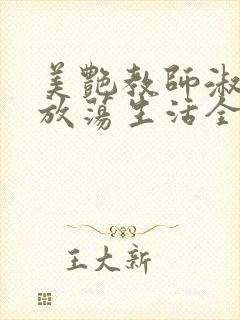 美艷教師淑
放蕩生活全
王大新